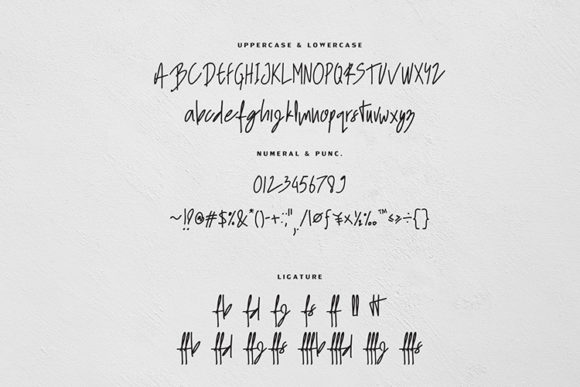 UPPERCASE & LOWERCASE
ABCDEFGHIJKLMNOPQRSTUVWXYZ
abcdefghijklmnopqrstuvwxyz
NUMERAL & PUNC.
0123456789
~!?@#$%&*()-+:;",./|øƒ¥×½‰™≤≥÷{}
LIGATURE
fb fd fg fs ff ll tt
ffb ffd ffg ffs fffb fffd fffg fffs